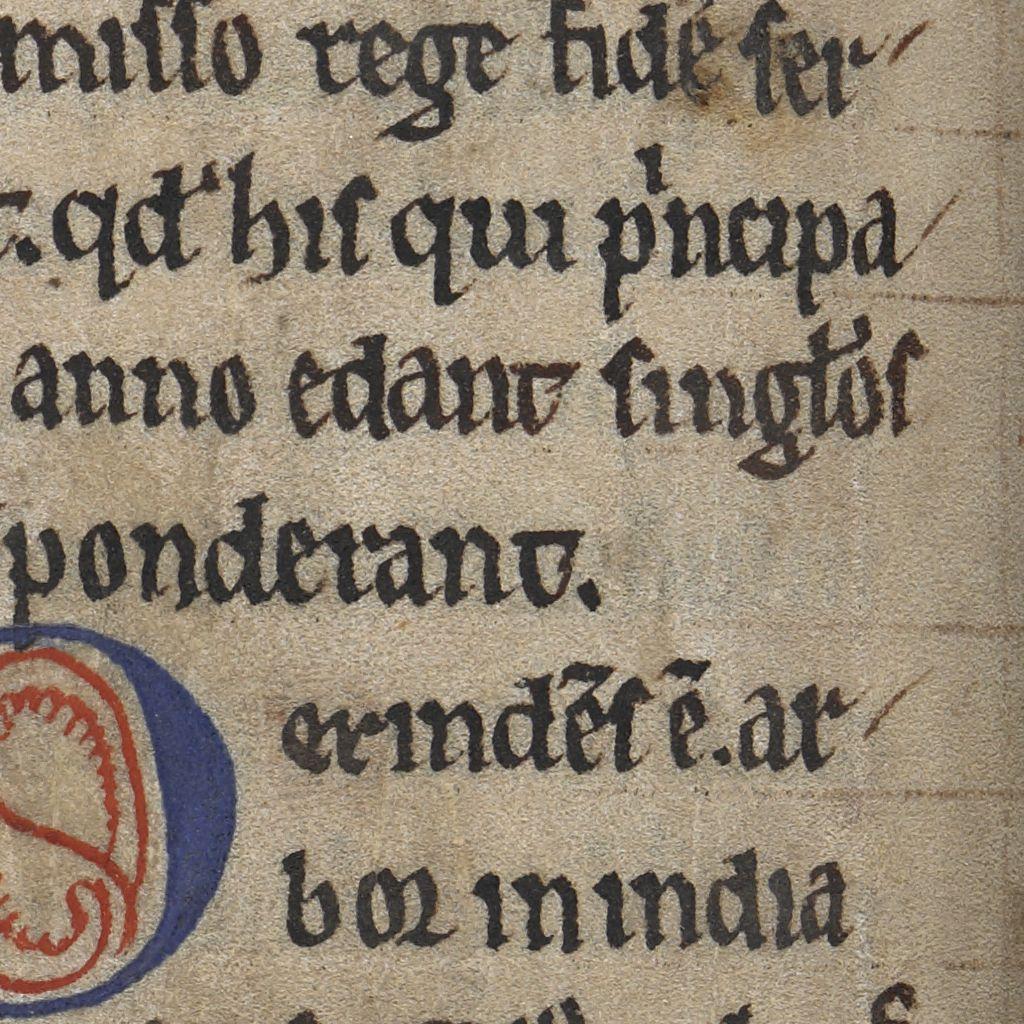 misso rege fidē ser/
t. qd' his qui pͥncipa/
anno edant singłos
ponderant.
erindēs ē. ar/
bor in india